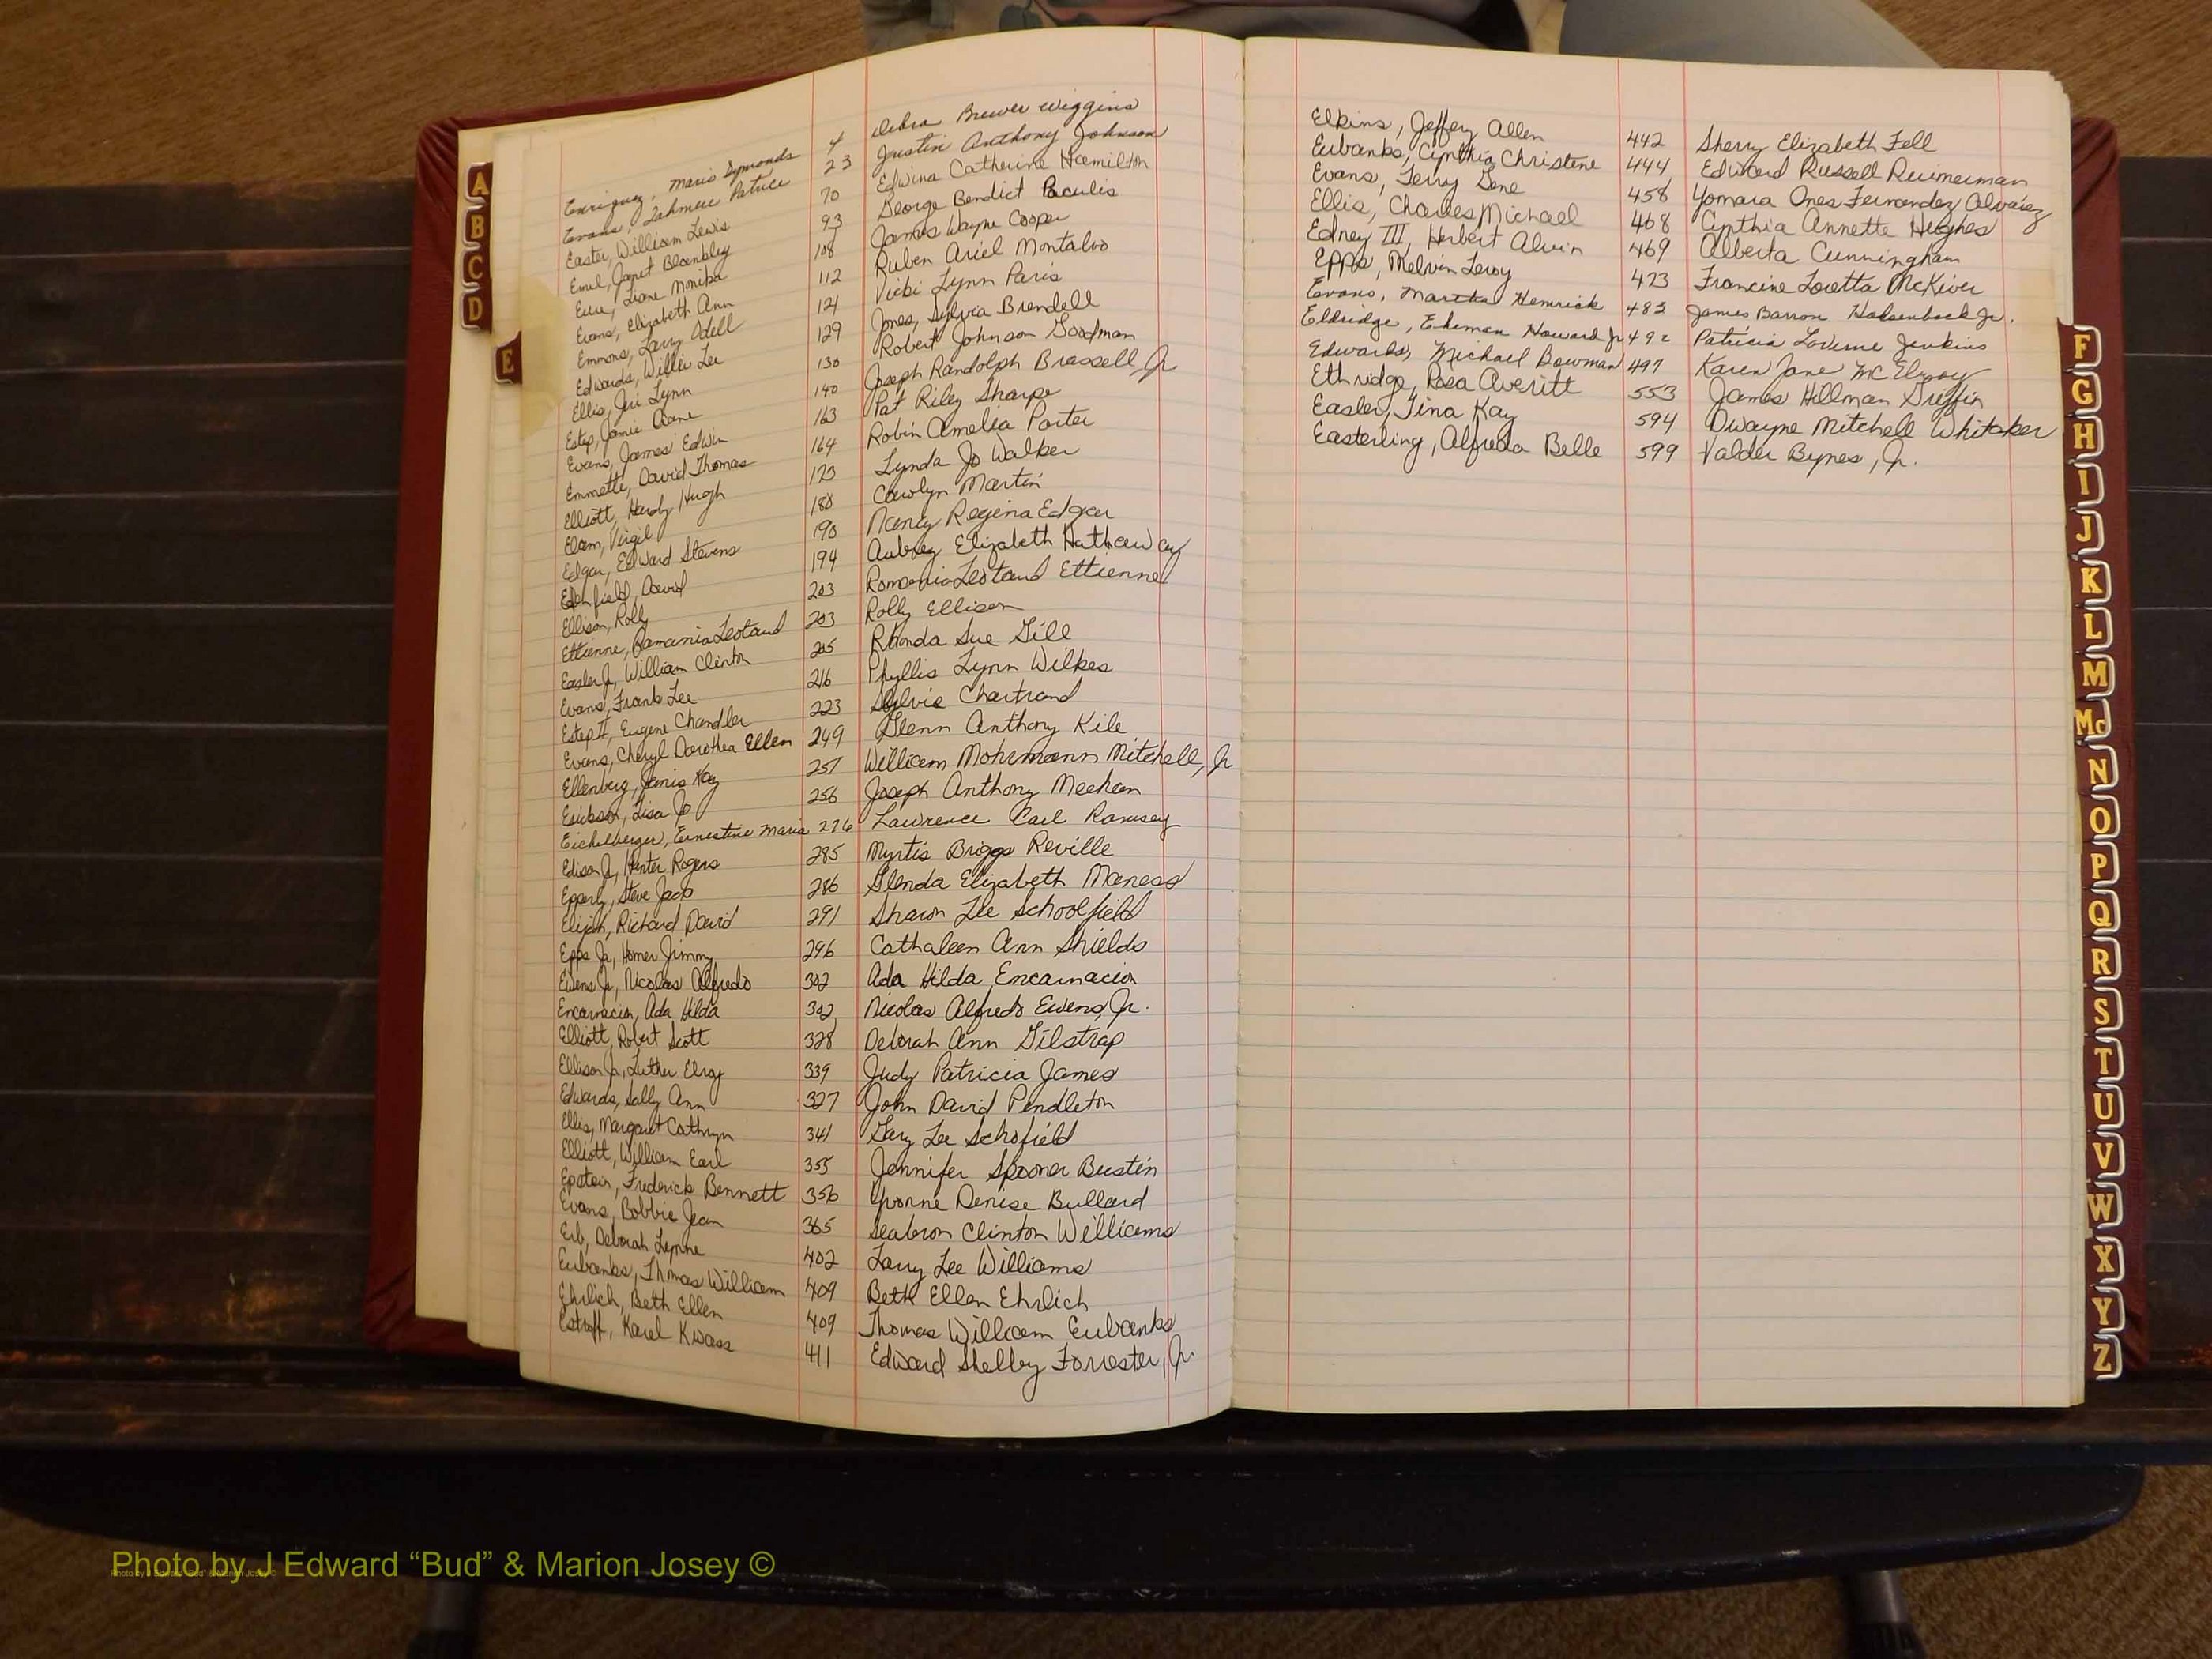 A
B
C
D
E
Enriquez, Mario Symonds 4 Debra Brewer Wiggins
Evans, Patrice 23 Justin Anthony Johnson
Easter, William Lewis 70 Edwina Catherine Hamilton
Emel, Janet 93 George Bendict Paculis
Eure, Liane Monika 108 James Wayne Cooper
Evans, Elizabeth Ann 112 Ruben Ariel Montalvo
Emmons, Larry Odell 124 Vicki Lynn Paris
Edwards, Willie Lee 129 Jones, Sylvia Brendell
Ellis, Jeri Lynn 130 Robert Johnson Goodman
Estep, Jamie Diane 140 Joseph Randolph Brassell Jr
Evans, James Edwin 163 Pat Riley Sharpe
Emmette, David Thomas 164 Robin Amelia Porter
Elliott, Hardy Hugh 173 Lynda Jo Walker
Elam, Virgil 188 Carolyn Martin
Edgar, Edward Stevens 190 Nancy Regina Edgar
Edenfield, David 194 Aubrey Elizabeth Hathaway
Ellison, Rolly 203 Romania Leotaud Ettienne
Ettienne, Romania Leotaud 203 Rolly Ellison
Easler Jr, William Clinton 205 Rhonda Sue Gill
Evans, Frank Lee 216 Phyllis Lynn Wilkes
Estep II, Eugene Chandler 223 Sylvie Chartrand
Evans, Cheryl Dorothea Ellen 249 Glenn Anthony Kile
Ellenberg, Janis Kay 251 William Mohrmann Mitchell, Jr
Erickson, Lisa Jo 256 Joseph Anthony Meehan
Eichelberger, Ernestine Maria 276 Lawrence Carl Ramsey
Edison Jr, Hunter Rogers 285 Myrtis Briggs Reville
Epperly, Steve Jack 286 Glenda Elizabeth Maness
Elijah, Richard David 291 Sharon Lee Schoolfield
Epps Jr, Homer Jimmy 296 Cathaleen Ann Shields
Ewens Jr, Nicolas Alfredo 302 Ada Hilda Encarnacion
Encarnacion, Ada Hilda 302 Nicolas Alfredo Ewens, Jr.
Elliott, Robert Scott 328 Deborah Ann Gilstrap
Ellison Jr, Luther Elroy 339 Judy Patricia James
Edwards, Sally Ann 327 John David Pendleton
Ellis, Margaret Cathryn 341 Gary Lee Schofield
Elliott, William Earl 355 Jennifer Spooner Bustin
Epstein, Frederick Bennett 356 Yvonne Denise Bullard
Evans, Bobbie Jean 365 Seabron Clinton Williams
Erb, Deborah Lynne 402 Larry Lee Williams
Eubanks, Thomas William 409 Beth Ellen Ehrlich
Ehrlich, Beth Ellen 409 Thomas William Eubanks
Estroff, Karel Kwass 411 Edward Shelley Forrester, Jr.
Elkins, Jeffery Allen 442 Sherry Elizabeth Fell
Eubanks, Cynthia Christene 444 Edward Russell Ruimerman
Evans, Terry Gene 458 Yomara Ones Fernandez Alvarez
Ellis, Charles Michael 468 Cynthia Annette Hughes
Edney III, Herbert Alvin 469 Alberta Cunningham
Epps, Melvin Leroy 473 Francine Loretta McKiver
Evans, Martha Hemrick 483 James Barron Halsenback Jr.
Eldridge, Ehiman Howard Jr 492 Patricia LaVerne Jenkins
Edwards, Michael Bowman 497 Karen Jane McElroy
Ethridge, Rosa Averitt 553 James Hillman Griffin
Easler, Tina Kay 594 Dwayne Mitchell Whitaker
Easterling, Alfreda Belle 599 Valder Bynes, Jr.
F
G
H
I
J
K
L
M
Mc
N
O
P
Q
R
S
T
U
V
W
X
Y
Z
Photo by J Edward “Bud” & Marion Josey ©